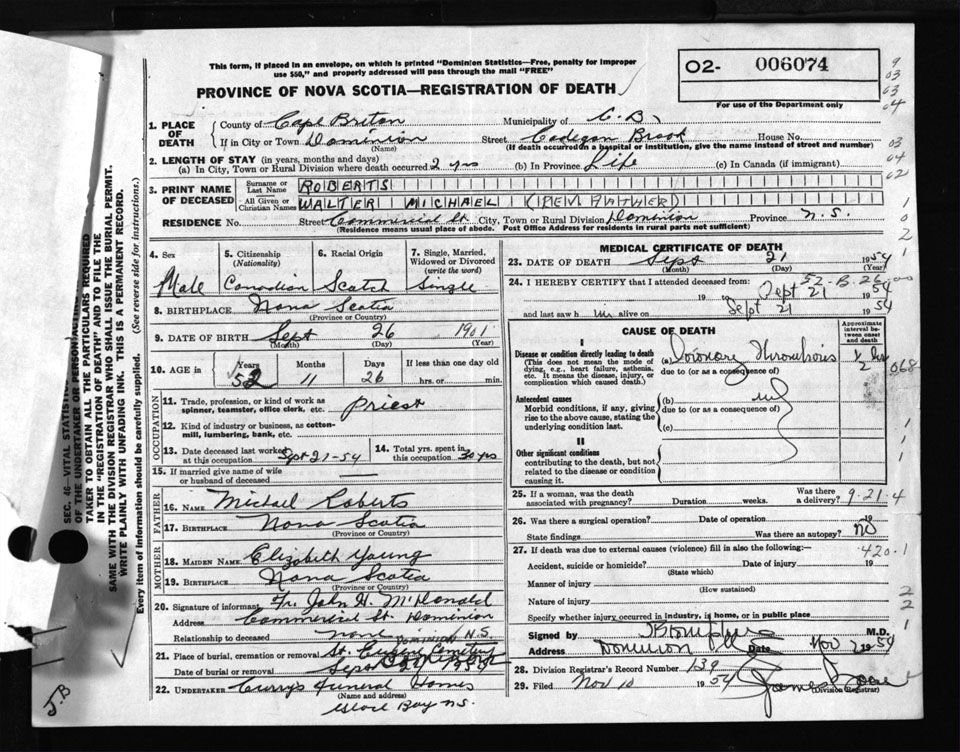 This form, if placed in an envelope, on which is printed "Dominion Statistics—Free, penalty for improper
use $50," and properly addressed will pass through the mail "FREE"
PROVINCE OF NOVA SCOTIA—REGISTRATION OF DEATH
O2- 006074
For use of the Department only
9
03
63
04
03
04
02
1. PLACE OF DEATH
County of Cape Breton Municipality of C.B.
If in City or Town Dominion Street Cadegan Brook House No.
(Name) (If death occurred in a hospital or institution, give the name instead of street and number)
2. LENGTH OF STAY (in years, months and days)
(a) In City, Town or Rural Division where death occurred 2 yrs (b) In Province Life (c) In Canada (if immigrant)
3. PRINT NAME OF DECEASED
Surname or Last Name ROBERTS
All Given or Christian Names WALTER MICHAEL (REV. FATHER)
RESIDENCE No. Street Commercial St. City, Town or Rural Division Dominion Province N.S.
(Residence means usual place of abode. Post Office Address for residents in rural parts not sufficient)
4. Sex
Male
5. Citizenship (Nationality)
Canadian
6. Racial Origin
Scotch
7. Single, Married, Widowed or Divorced (write the word)
Single
8. BIRTHPLACE Nova Scotia
(Province or Country)
9. DATE OF BIRTH Sept 26 1901
(Month) (Day) (Year)
10. AGE in Years Months Days If less than one day old
52 11 26 hrs. or min.
OCCUPATION
11. Trade, profession, or kind of work as spinner, teamster, office clerk, etc. Priest
12. Kind of industry or business, as cotton-mill, lumbering, bank, etc.
13. Date deceased last worked at this occupation Sept 21-54
14. Total yrs. spent in this occupation 30 yrs
15. If married give name of wife or husband of deceased
FATHER
16. NAME Michael Roberts
17. BIRTHPLACE Nova Scotia
(Province or Country)
MOTHER
18. MAIDEN NAME Elizabeth Young
19. BIRTHPLACE Nova Scotia
(Province or Country)
20. Signature of informant Fr. John H. McDonald
Address Commercial St. Dominion
Relationship to deceased none
DOMINION N.S.
21. Place of burial, cremation or removal St. Eugene Cemetery
Date of burial or removal Sept 1954
22. UNDERTAKER Curry's Funeral Homes
(Name and address)
Glace Bay N.S.
MEDICAL CERTIFICATE OF DEATH
23. DATE OF DEATH Sept 21 1954
(Month) (Day) (Year)
52-B-26-00
24. I HEREBY CERTIFY that I attended deceased from:
19 Sept 21 1954
and last saw h im alive on Sept 21 1954
CAUSE OF DEATH
Approximate interval between onset and death
I
Disease or condition directly leading to death
(This does not mean the mode of dying, e.g., heart failure, asthenia, etc. It means the disease, injury, or complication which caused death.)
(a) Coronary Thrombosis
due to (or as a consequence of)
1/2
068
Antecedent causes
Morbid conditions, if any, giving rise to the above cause, stating the underlying condition last.
(b) nil
due to (or as a consequence of)
(c)
II
Other significant conditions
contributing to the death, but not related to the disease or condition causing it.
25. If a woman, was the death associated with pregnancy? Duration weeks. Was there a delivery? 9-21-4
26. Was there a surgical operation? Date of operation 19
State findings Was there an autopsy? no
27. If death was due to external causes (violence) fill in also the following:— 420.1
Accident, suicide or homicide? Date of injury 19
(State which)
Manner of injury
(How sustained)
Nature of injury
Specify whether injury occurred in industry, in home, or in public place
Signed by M.D.
Address Dominion Date Nov 2 1954
28. Division Registrar's Record Number 139
29. Filed Nov 10 1954
(Division Registrar)
SEC. 46—VITAL
OF THE UNDERTAKER OR PERSON
TAKER TO OBTAIN ALL THE PARTICULARS REQUIRED
IN THE "REGISTRATION OF DEATH" AND TO FILE THE
SAME WITH THE DIVISION REGISTRAR WHO SHALL ISSUE THE BURIAL PERMIT.
WRITE PLAINLY WITH UNFADING INK. THIS IS A PERMANENT RECORD.
Every item of information should be carefully supplied. (See reverse side for instructions.)
J.B